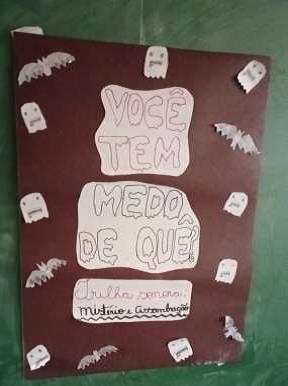 VOCÊ
TEM
MEDO
DE QUÊ?
Trilha sonora:
Mistério e Assombração